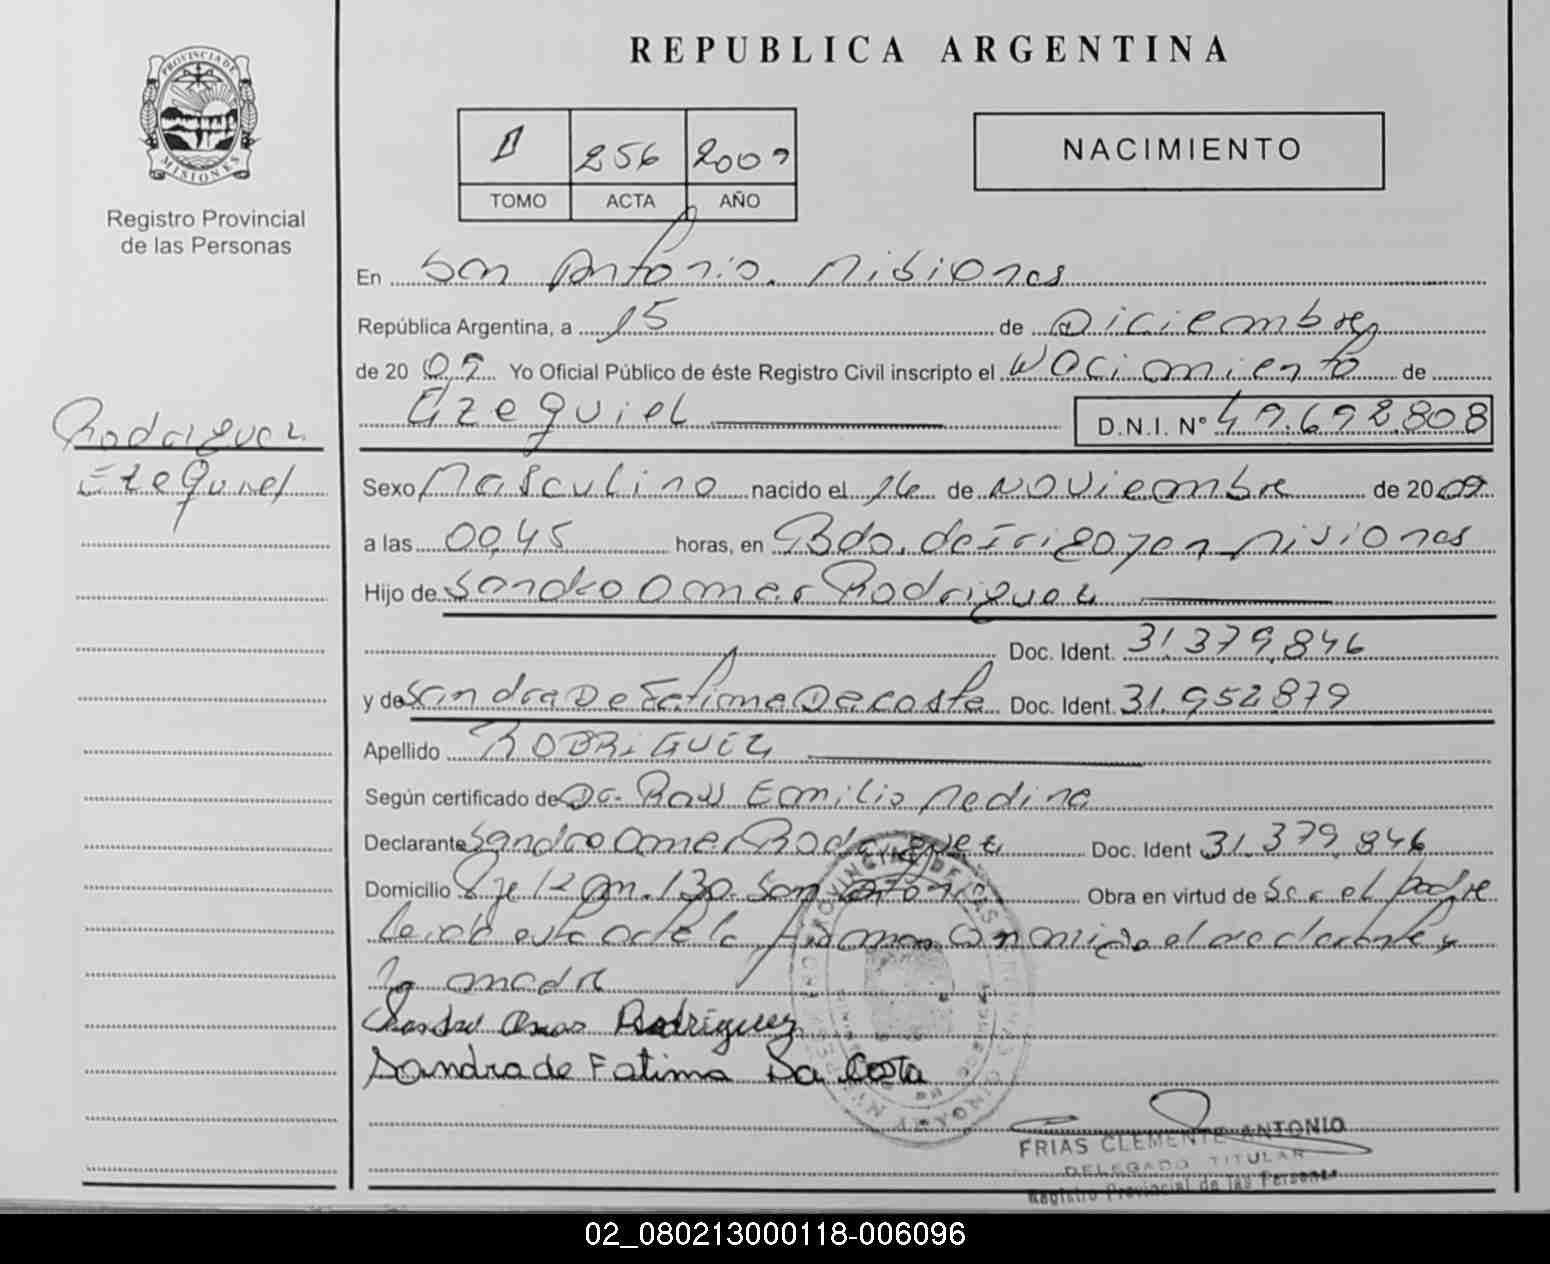 REPUBLICA ARGENTINA
PROVINCIA DE
MISIONES
Registro Provincial
de las Personas
256 2009
TOMO ACTA AÑO
NACIMIENTO
En San Antonio. Misiones
República Argentina, a 15 de Diciembre
de 20 09 Yo Oficial Público de éste Registro Civil inscripto el Nacimiento de
Ezequiel D.N.I. N° 49.692.808
Rodriguez
Ezequiel
Sexo Masculino nacido el 16 de Noviembre de 2009
a las 00,45 horas, en Bdo. de Irigoyen Misiones
Hijo de Sandro Omar Rodriguez
Doc. Ident. 31.379.846
y de Sandra De Fatima Da costa Doc. Ident. 31.952879
Apellido RODRIGUEZ
Según certificado de Dr. Raul Emilio Medina
Declarante Sandro Omar Rodriguez Doc. Ident 31.379.846
Domicilio Pje 12 Km. 130. San Antonio Obra en virtud de Ser el padre
Leida esta acta la firman conmigo el declarante y
la madre
Omar Rodriguez
Sandra de Fatima Da Costa
FRIAS CLEMENTE ANTONIO
DELEGADO TITULAR
Registro Provincial de las Personas
02_080213000118-006096